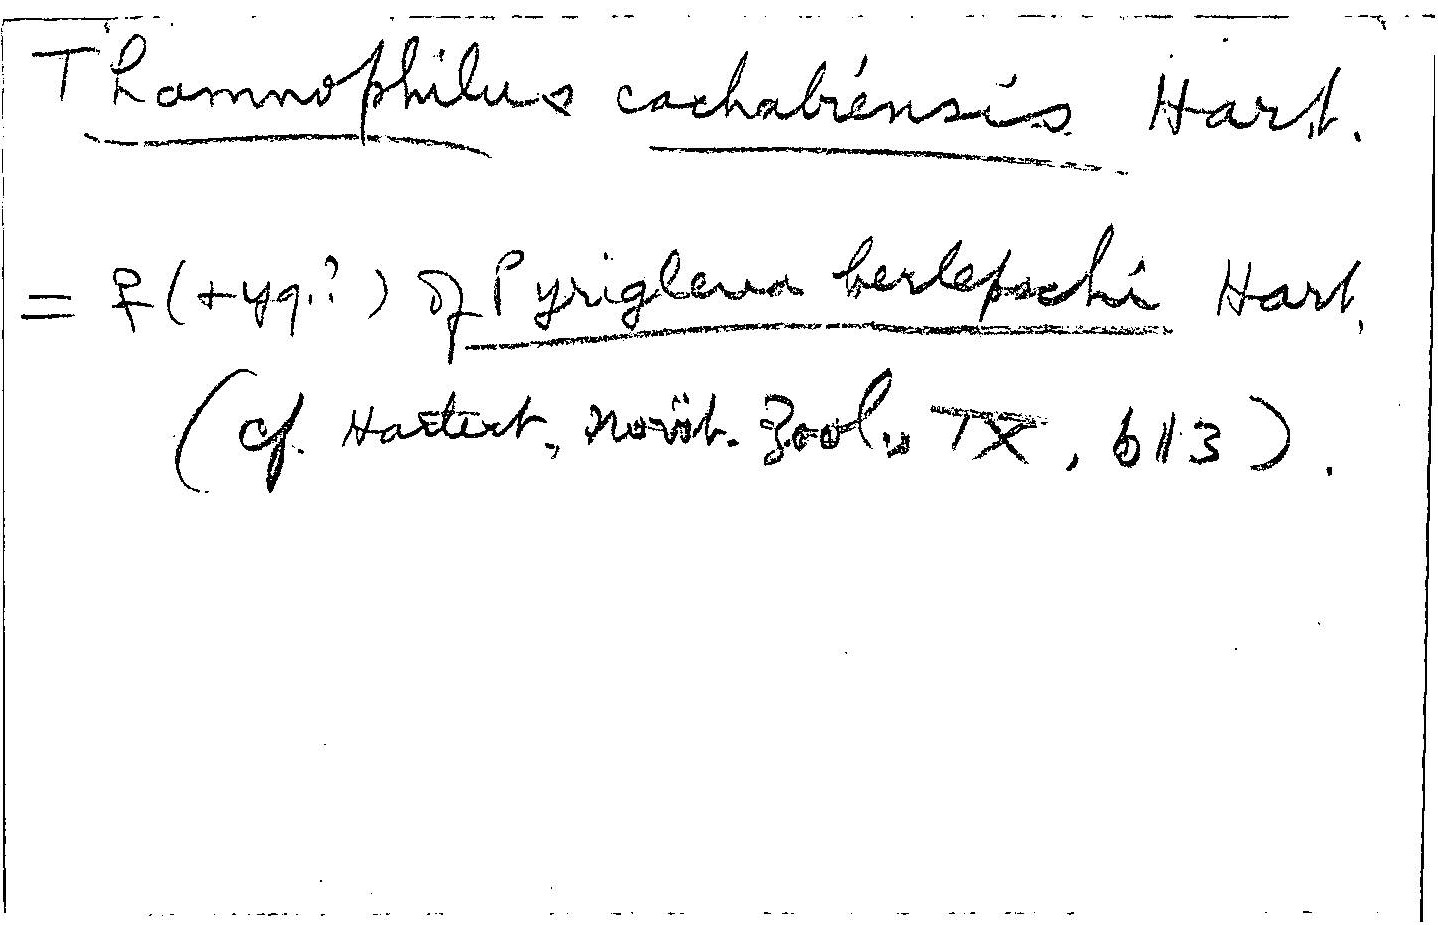 Thamnophilus cachabiensis Hart.
= ♀ (+ yg.?) of Pyriglena berlepschi Hart.
(cf. Hartert, Novit. Zool., IX, 613).